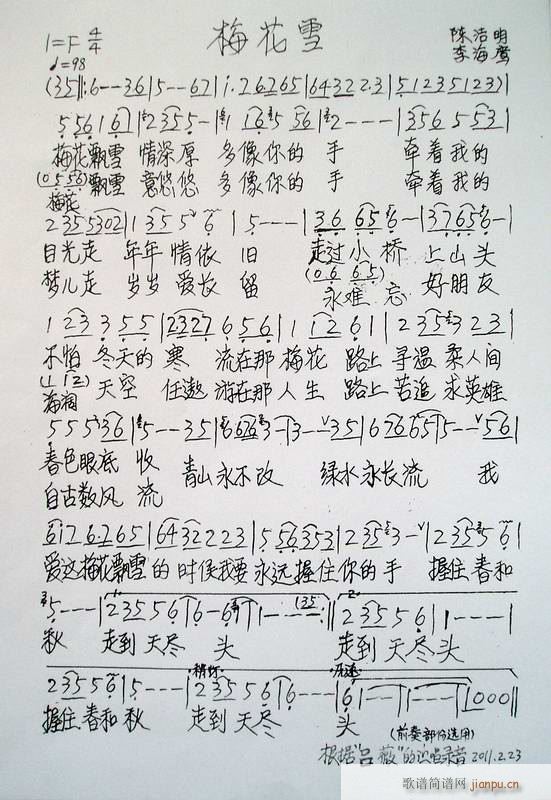 梅花雪
1=F 4/4
♩=98
陈浩明
李海鹰
(35‖:6--36|5--67|i.26265|64322.3|51235123)|
556167|2355--|1655 56|2---|356553|
梅花飘雪 情深厚 多像你的 手 牵着我的
(0 5 56)飘雪 意悠悠 多像你的 手 牵着我的
梅花
2355302|13556|5---|36656-|37656-|
目光走 年年情依旧 走过小桥 上山头
梦儿走 岁岁爱长留 (06 65) 永难忘 好朋友
123355|2327656|11261|2353 23|
不怕 冬天的寒 流在那梅花 路上寻温柔人间
(1 12) 天空 任遨 游在那人生 路上苦追 求英雄
海阔
55536|5--35|66763-|3--35|676765|5--56|
春色眼底 收 青山永不改 绿水永长流 我
自古数风 流
6126265|6432223|5556353|2353-|23556|
爱这梅花飘雪的时候我要永远握住你的手 握住春和
5---|235556|6-6|1---35:‖235556|1---|
秋 走到天尽 头 走到天尽头
稍慢 原速
235556|5---|235556|6---|6 1---|1---|1000‖
握住春和秋 走到天尽 头
(前奏部份选用)
根据"吕薇"的演唱录音 2011.2.23
歌谱简谱网 jianpu.cn